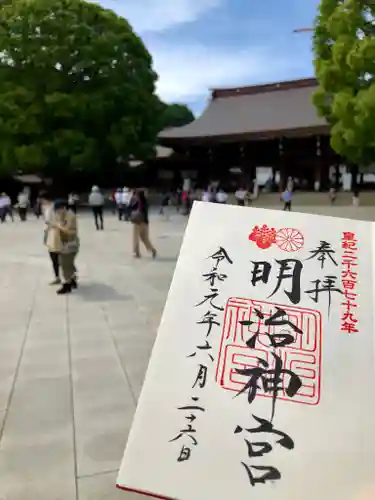 皇紀二千六百七十九年
奉拝
明治神宮
令和元年六月二十六日